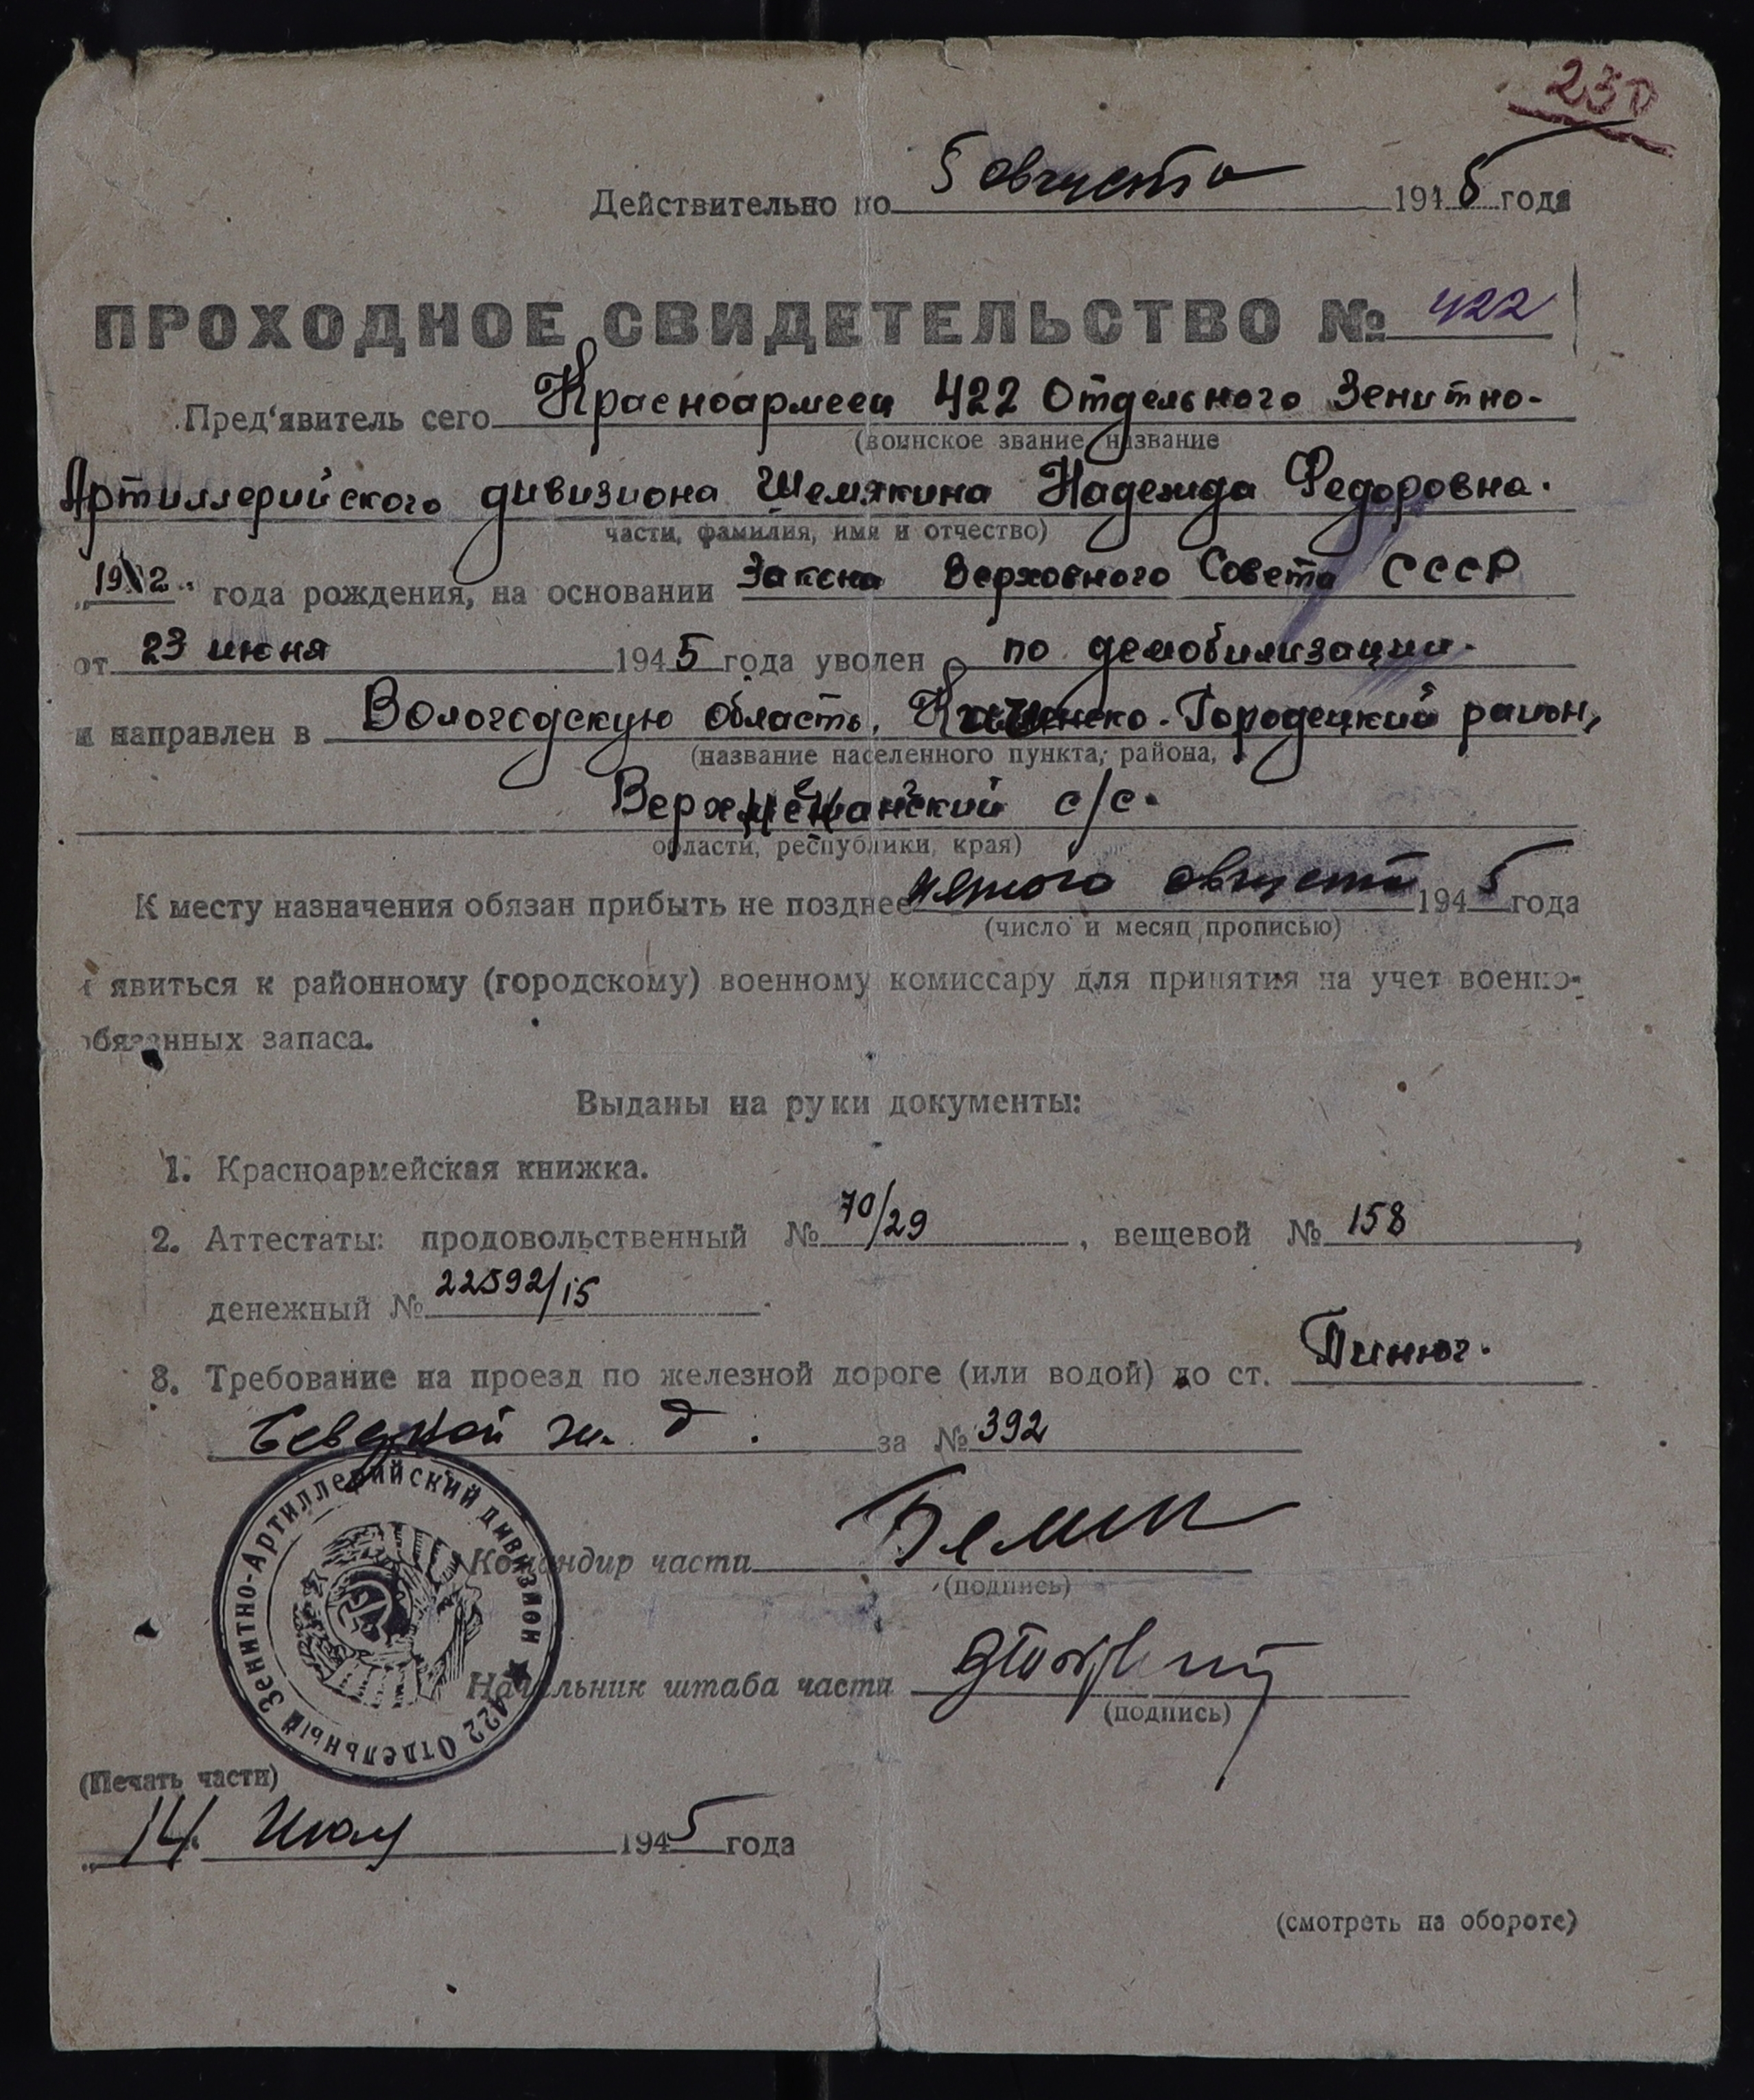 230
Действительно по 5 августа 1945 года
ПРОХОДНОЕ СВИДЕТЕЛЬСТВО № 422
Пред'явитель сего Красноармеец 422 Отдельного Зенитно-
(воинское звание, название
Артиллерийского дивизиона Шемякина Надежда Федоровна.
части, фамилия, имя и отчество)
года рождения, на основании Закона Верховного Совета СССР
от 23 июня 1945 года уволен по демобилизации.
и направлен в Вологодскую область, Городецкий район,
(название населенного пункта, района,
с/с.
области, республики, края)
К месту назначения обязан прибыть не позднее пятого августа 1945 года
(число и месяц прописью)
и явиться к районному (городскому) военному комиссару для принятия на учет военно-
обязанных запаса.
Выданы на руки документы:
1. Красноармейская книжка.
2. Аттестаты: продовольственный № 70/29, вещевой № 158,
денежный № 22592/15.
3. Требование на проезд по железной дороге (или водой) до ст. Пинюг.
Северной ж. д. за № 392
Командир части
(подпись)
Начальник штаба части
(подпись)
422 Отдельный Зенитно-Артиллерийский дивизион
(Печать части)
„14" Июля 1945 года
(смотреть на обороте)